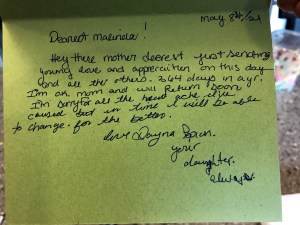 may 8th/21
Dearest marinda!
Hey there mother dearest just sending
young love and appreciation on this day
and all the others. 364 days in a yr.
I'm ok mom and will return soon
I'm sorry for all the heart ache ive
caused but in time I will be able
to change for the better.
love Dayna
your
daughter.
always.